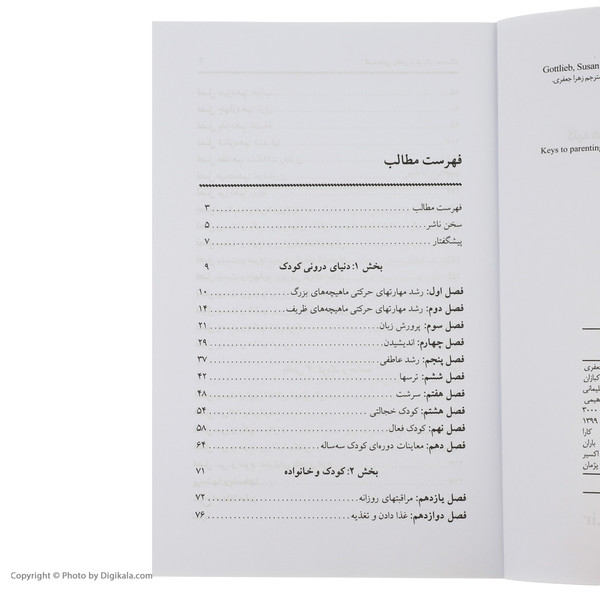 فهرست مطالب
فهرست مطالب ........ ۳
سخن ناشر ........ ۵
پیشگفتار ........ ۷
بخش ۱: دنیای درونی کودک ۹
فصل اول: رشد مهارتهای حرکتی ماهیچه‌های بزرگ ........ ۱۰
فصل دوم: رشد مهارتهای حرکتی ماهیچه‌های ظریف ........ ۱۴
فصل سوم: پرورش زبان ........ ۲۱
فصل چهارم: اندیشیدن ........ ۲۹
فصل پنجم: رشد عاطفی ........ ۳۷
فصل ششم: ترسها ........ ۴۲
فصل هفتم: سرشت ........ ۴۸
فصل هشتم: کودک خجالتی ........ ۵۴
فصل نهم: کودک فعال ........ ۵۸
فصل دهم: معاینات دوره‌ای کودک سه‌ساله ........ ۶۴
بخش ۲: کودک و خانواده ۷۱
فصل یازدهم: مراقبتهای روزانه ........ ۷۲
فصل دوازدهم: غذا دادن و تغذیه ........ ۷۶
Gottlieb, Susan
مترجم زهرا جعفری.
Keys to parenting
جعفری
۳۰۰۰
۱۳۹۹
کارا
باران
اکسیر
پژمان
Copyright © Photo by Digikala.com